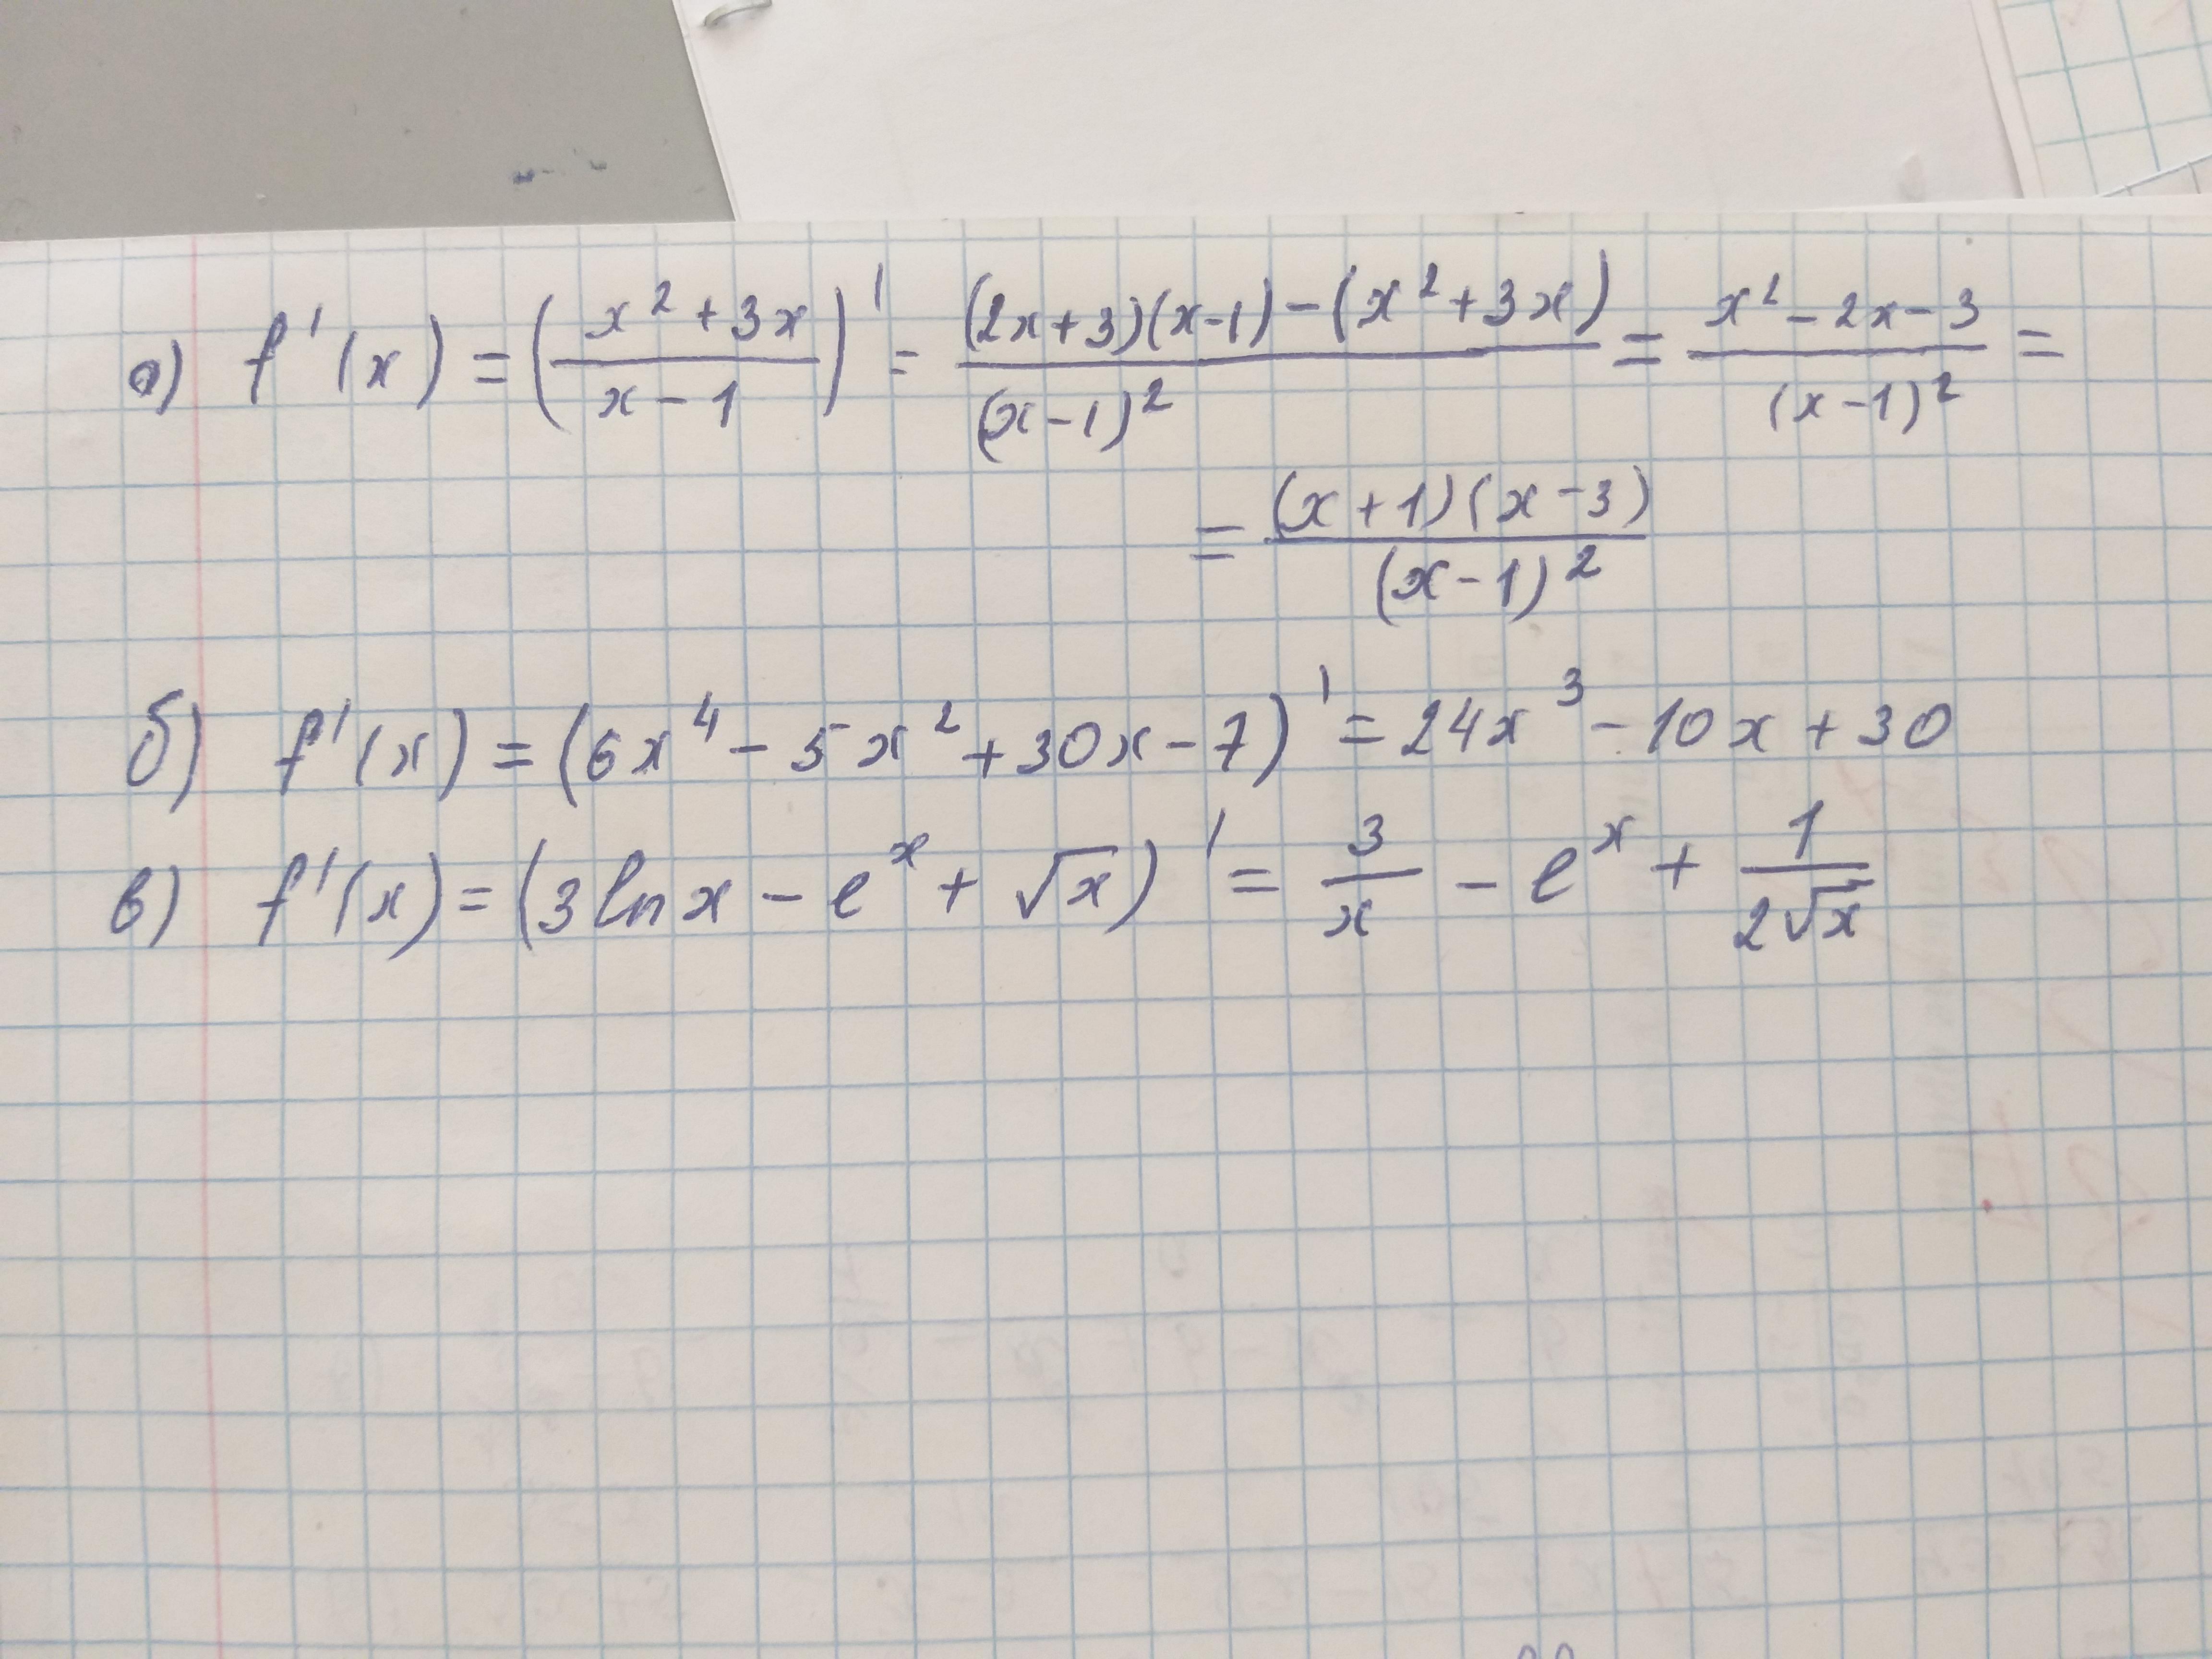 а) f'(x) = ((x² + 3x)/(x - 1))' = ((2x+3)(x-1) - (x² + 3x))/(x-1)² = (x² - 2x - 3)/(x-1)² =
= ((x+1)(x-3))/(x-1)²
б) f'(x) = (6x⁴ - 5x² + 30x - 7)' = 24x³ - 10x + 30
в) f'(x) = (3 ln x - eˣ + √x)' = 3/x - eˣ + 1/(2√x)